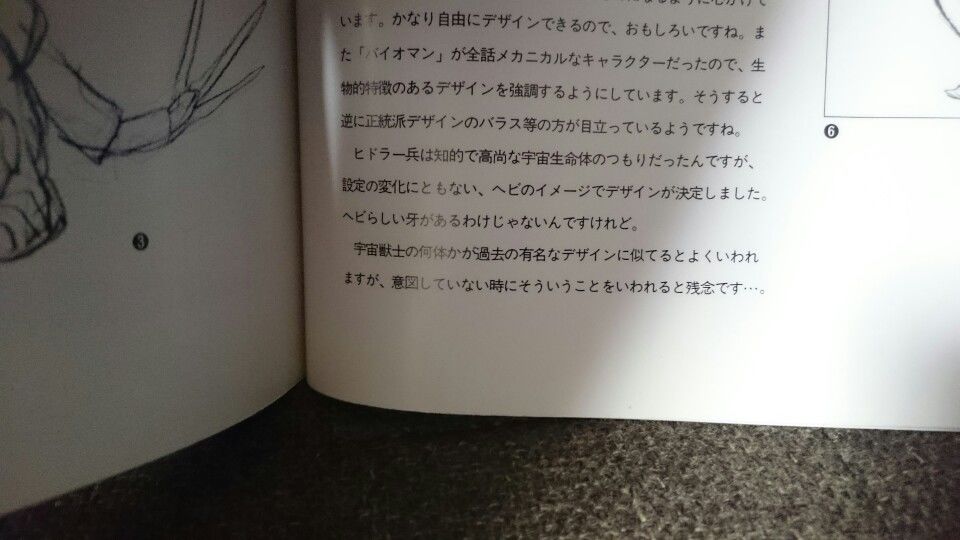 なるように心がけて
います。かなり自由にデザインできるので、おもしろいですね。ま
た「バイオマン」が全話メカニカルなキャラクターだったので、生
物的特徴のあるデザインを強調するようにしています。そうすると
逆に正統派デザインのバラス等の方が目立っているようですね。
ヒドラー兵は知的で高尚な宇宙生命体のつもりだったんですが、
設定の変化にともない、ヘビのイメージでデザインが決定しました。
ヘビらしい牙があるわけじゃないんですけれど。
宇宙獣士の何体かが過去の有名なデザインに似てるとよくいわれ
ますが、意図していない時にそういうことをいわれると残念です…。
❸
❻